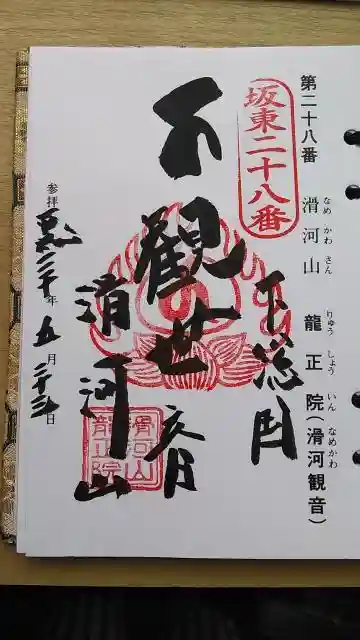 第二十八番 滑河山 龍正院(滑河観音)
なめ かわ さん りゅう しょう いん なめかわ
坂東二十八番
下総国
観世音
滑河山
滑河山
龍正院
参拝 年 五月 二十三日